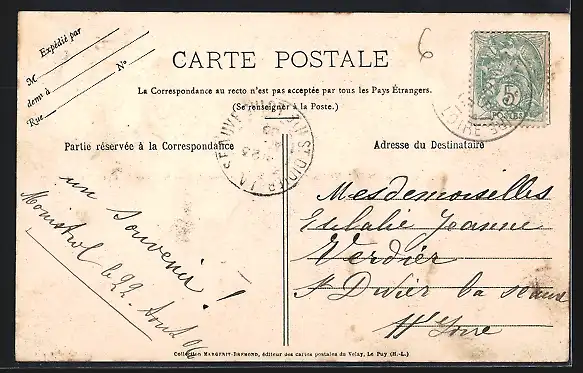 Expédié par
M
demt à
Rue
No
6
CARTE POSTALE
La Correspondance au recto n'est pas acceptée par tous les Pays Étrangers.
(Se renseigner à la Poste.)
Partie réservée à la Correspondance
Adresse du Destinataire
ST DIDIER-LA-SEAUVE
HTE LOIRE
5c
POSTES
LOIRE
un souvenir !
Monistrol le 22 Aout 06
Mesdemoiselles
Eulalie Jeanne
Verdier
St Didier la Seauve
Hte Loire
Collection MARGERIT-BREMOND, éditeur des cartes postales du Velay, Le Puy (H.-L.)